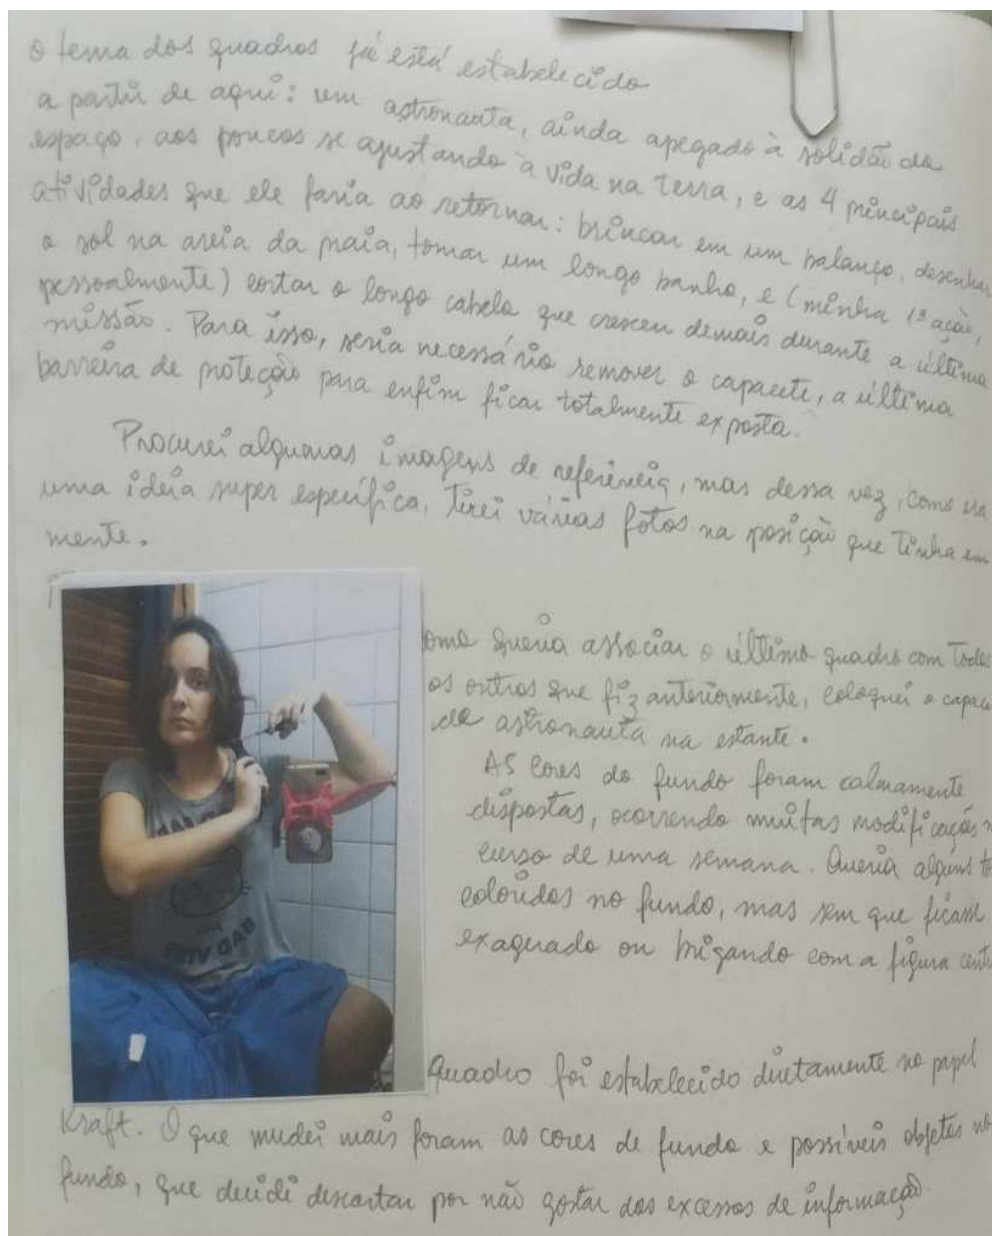 O tema dos quadros já está estabelecido
a partir de aqui: um astronauta, ainda apegado à solidão do
espaço, aos poucos se ajustando à vida na Terra, e as 4 principais
atividades que ele faria ao retornar: brincar em um balanço, desenhar
o sol na areia da praia, tomar um longo banho, e (minha 1ª ação,
pessoalmente) cortar o longo cabelo que cresceu demais durante a última
missão. Para isso, seria necessário remover o capacete, a última
barreira de proteção para enfim ficar totalmente exposta.
Procurei algumas imagens de referência, mas dessa vez, como era
uma ideia super específica, tirei várias fotos na posição que tinha em
mente.
omo queria associar o último quadro com todos
os outros que fiz anteriormente, coloquei o capace
de astronauta na estante.
AS cores do fundo foram calmamente
dispostas, ocorrendo muitas modificações n
curso de uma semana. Queria alguns to
coloridos no fundo, mas sem que ficasse
exagerado ou brigando com a figura cent
BAD VIBES
Quadro foi estabelecido diretamente no papel
Kraft. O que mudei mais foram as cores de fundo e possíveis objetos no
fundo, que decidi descartar por não gostar dos excessos de informação.